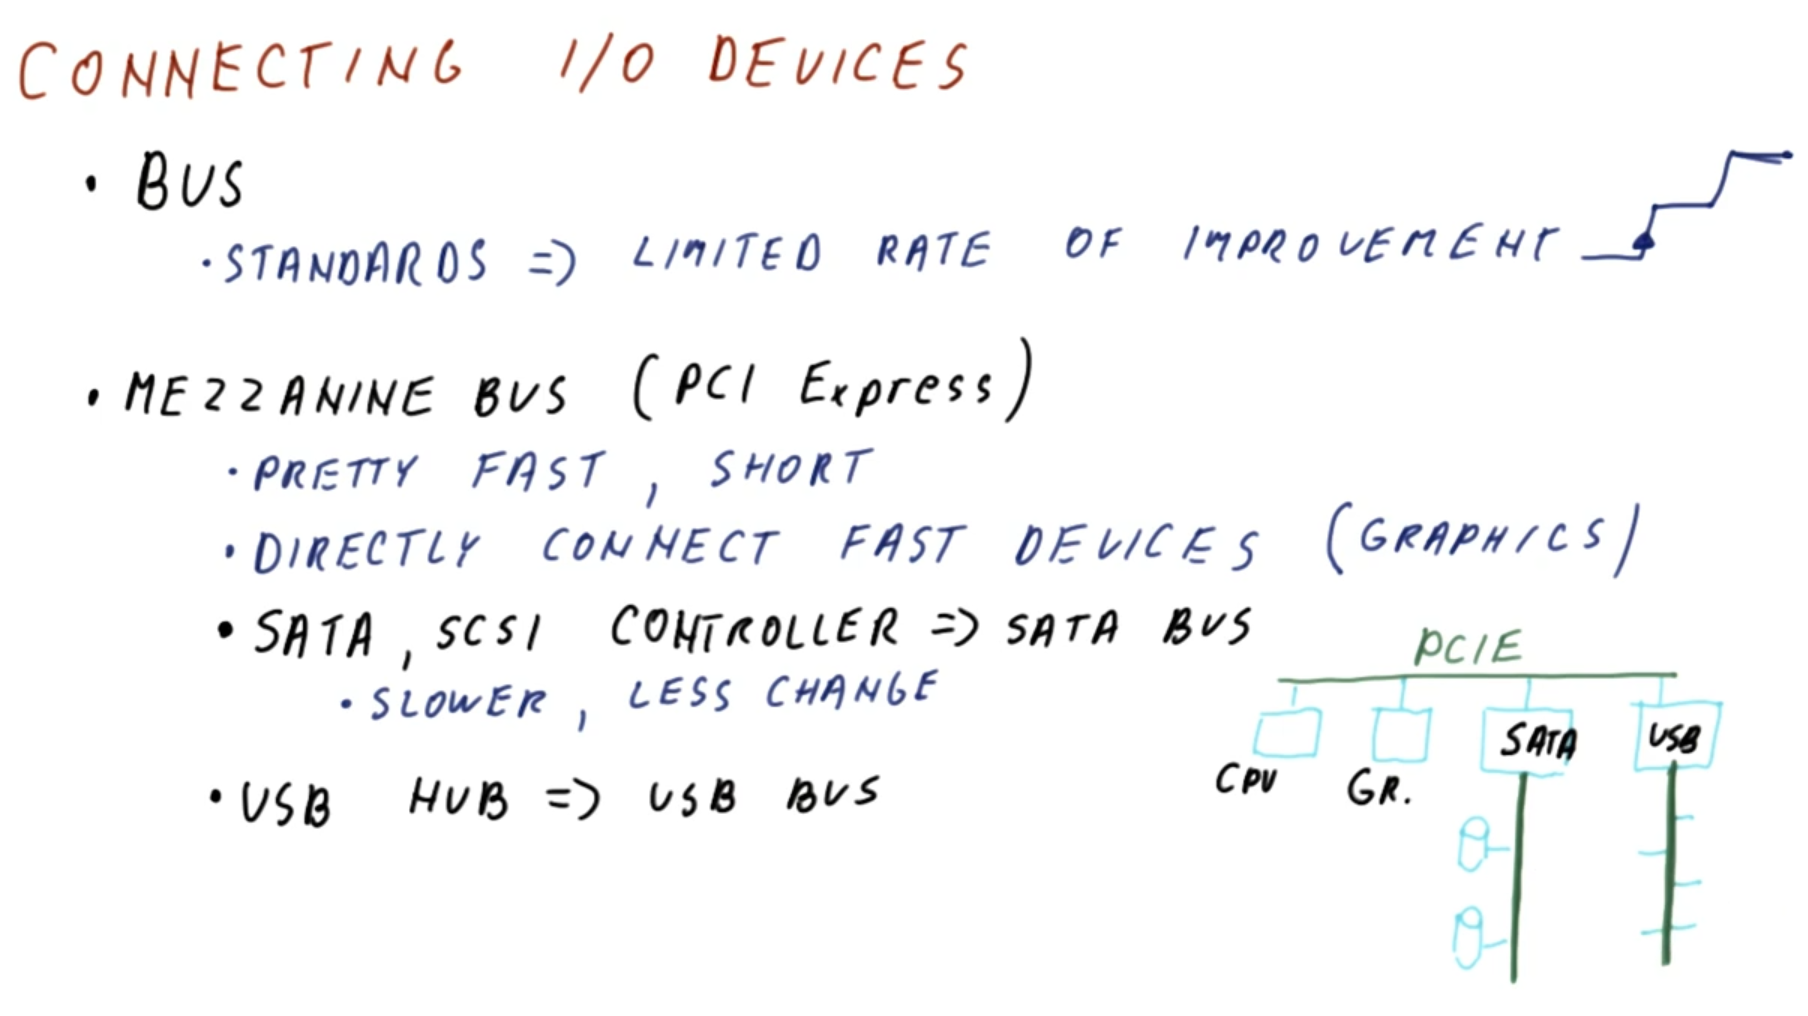 CONNECTING I/O DEVICES
• BUS
• STANDARDS => LIMITED RATE OF IMPROVEMENT
• MEZZANINE BUS (PCI Express)
• PRETTY FAST, SHORT
• DIRECTLY CONNECT FAST DEVICES (GRAPHICS)
• SATA, SCSI CONTROLLER => SATA BUS
• SLOWER, LESS CHANGE
• USB HUB => USB BUS
PCIE
SATA
USB
CPU
GR.